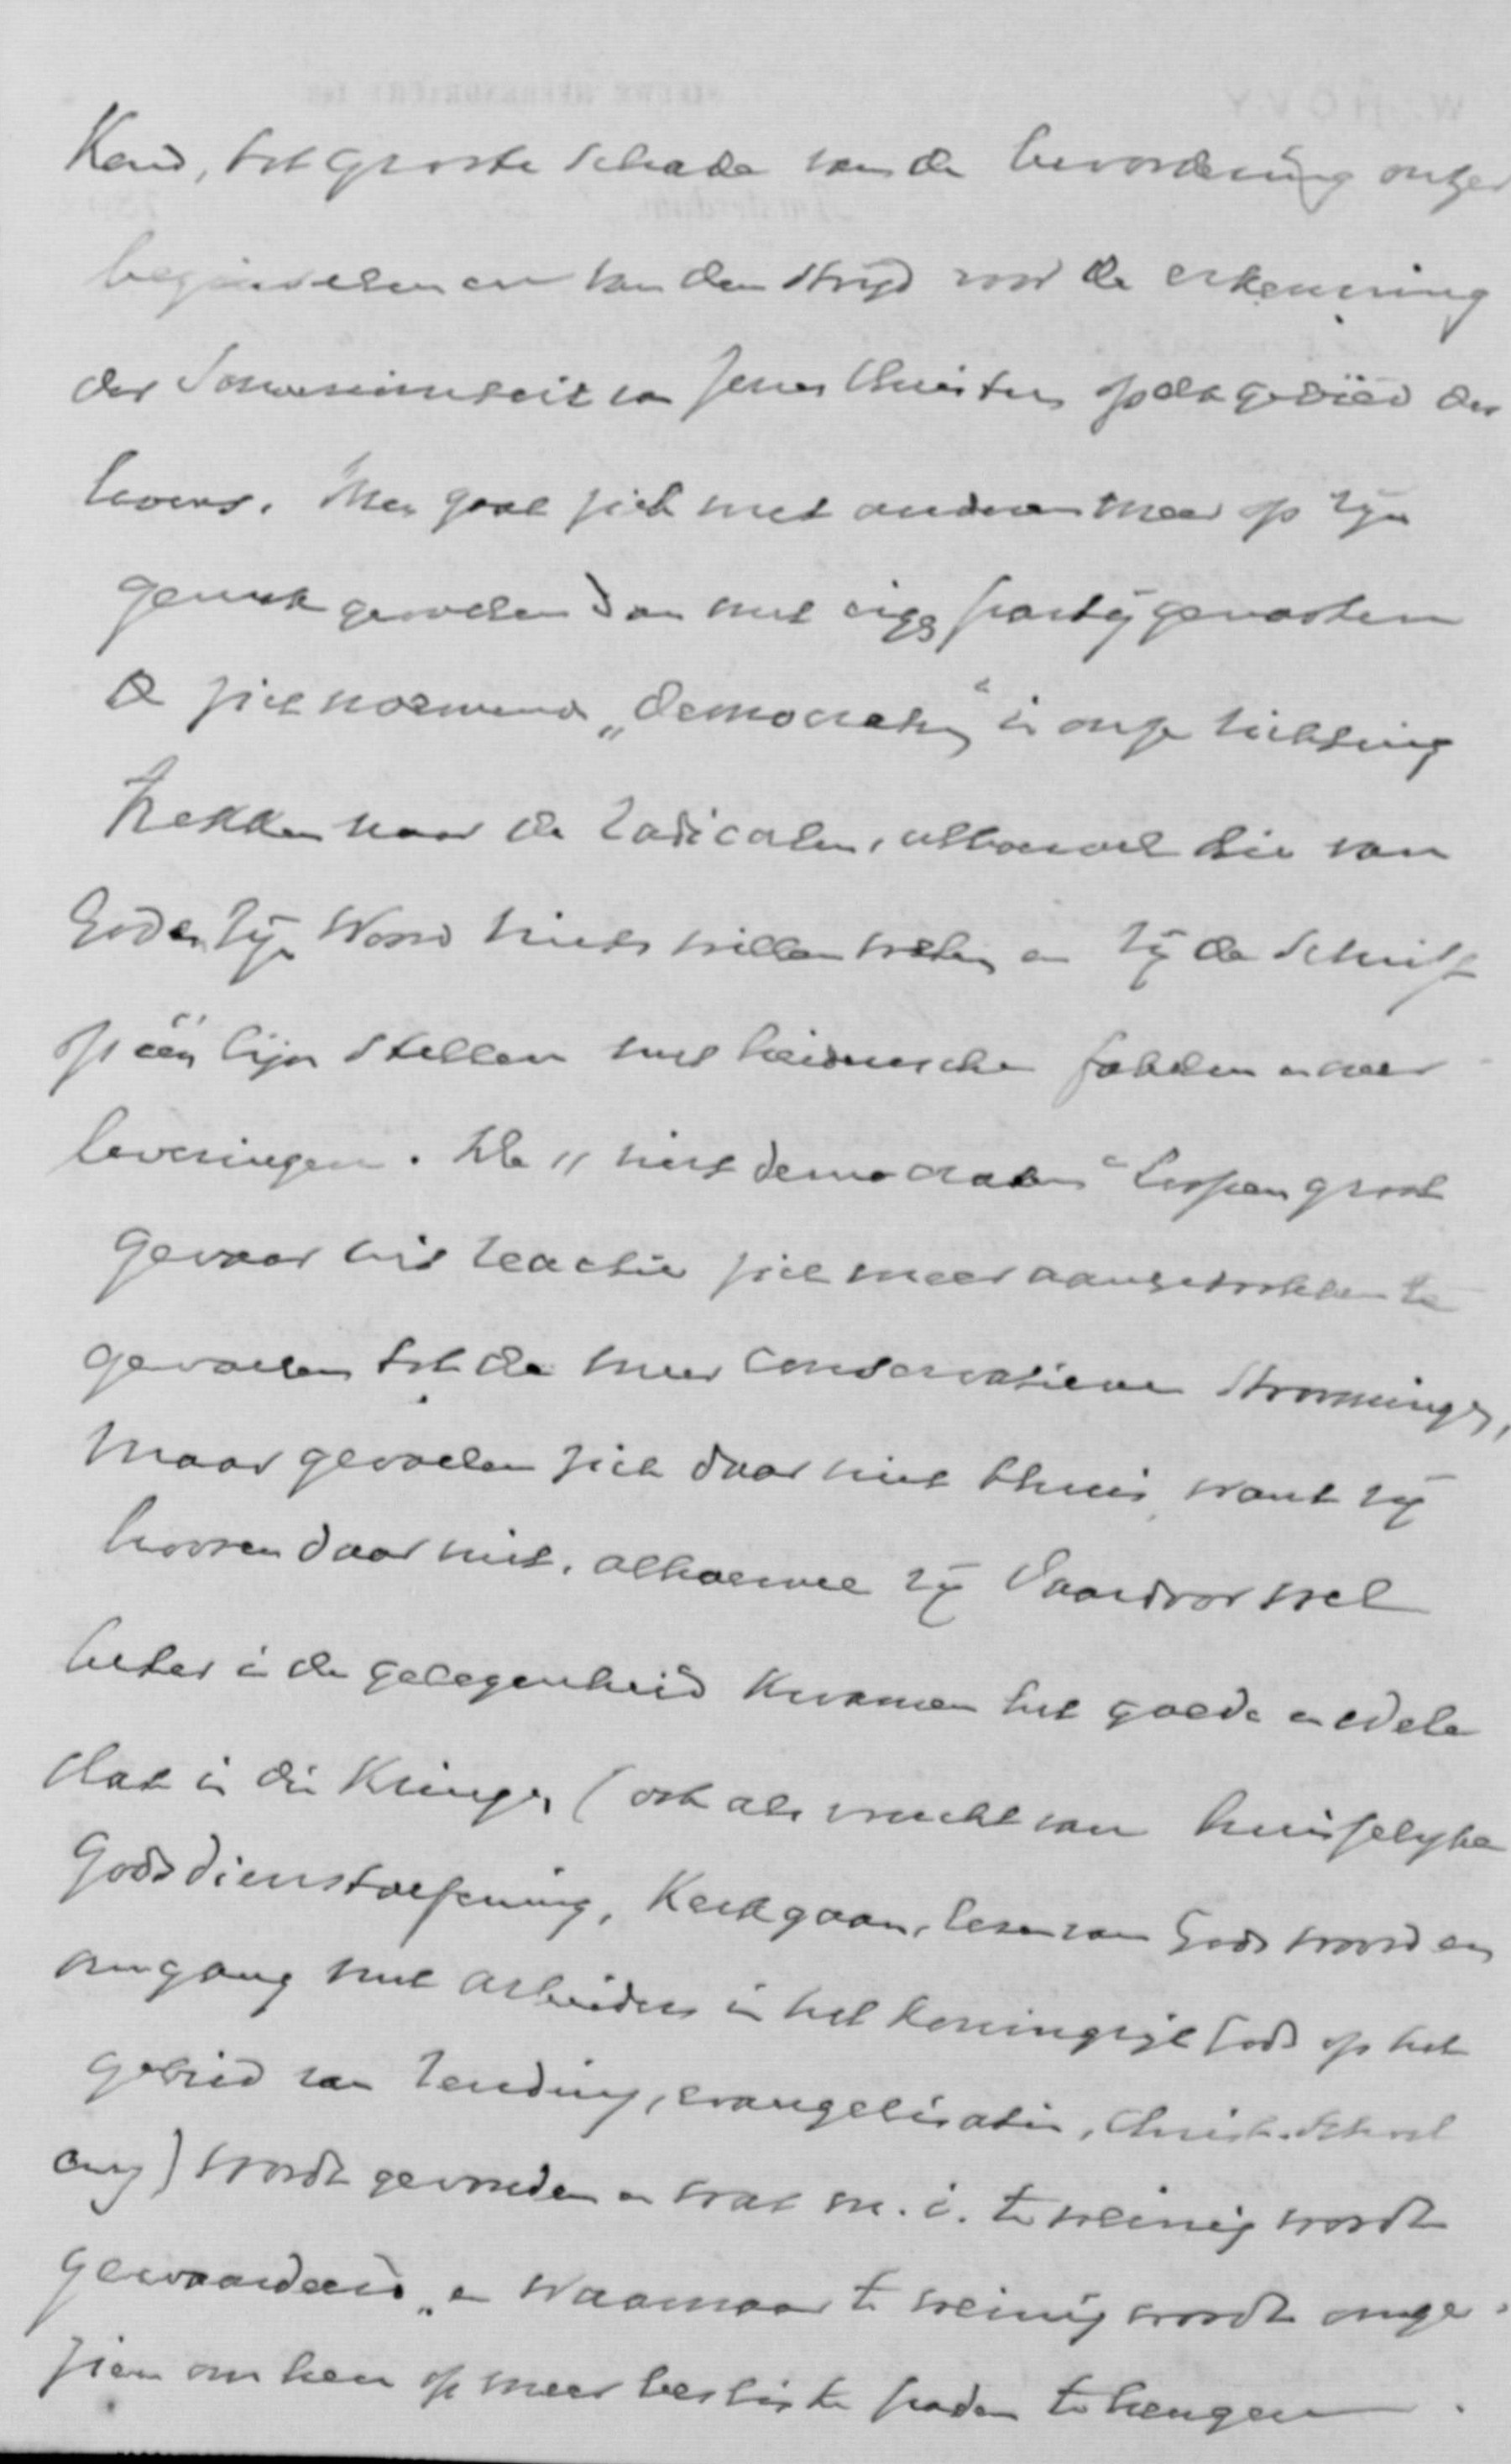 Kend, tot groote schade van de bevordering onzer
beginselen en van den strijd voor de erkenning
der Souvereiniteit van Jezus Christus op elk gebied des
levens. Men gaat zich met anderen meer op zijn
gemak gevoelen dan met eigen partijgenooten
De zich noemende „democraten" in onze richting
trekken naar de radicalen, alhoewel die van
God en Zijn Woord niets willen weten en zij de Schrift
op één lijn stellen met heidensche fabelen en over
leveringen. De „niet democraten" loopen groot
gevaar uit reactie zich meer aangetrokken te
gevoelen tot de meer conservatieve stroomingen,
maar gevoelen zich daar niet thuis, want zij
hooren daar niet, alhoewel zij daardoor wel
beter in de gelegenheid kwamen het goede en edele
dat in die kringen (ook als vrucht van huiselijke
Godsdienstoefening, Kerkgaan, lezen van Gods woord en
omgang met arbeiders in het koningrijk Gods op het
gebied van Zending, evangelisatie, Christ. School
enz) wordt gevonden en wat m.i. te weinig wordt
gewaardeerd, en waarnaar te weinig wordt omge-
zien om hen op meer besliste paden te brengen.